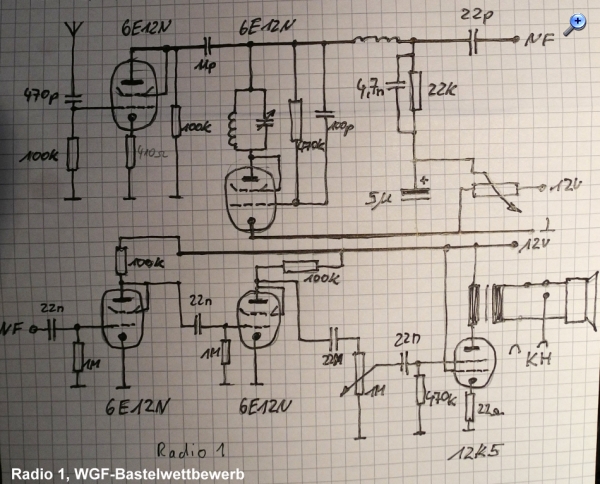 6E12N 6E12N 22p
NF
470p 11p 4,7n
22k
100k 470k 100p
100k 410Ω
5µ +
12V
⊥
12V
100k 100k
22n 22n
NF
22n 22n KH
1M 1M 1M
470k 22Ω
6E12N 6E12N
12K5
Radio 1
Radio 1, WGF-Bastelwettbewerb